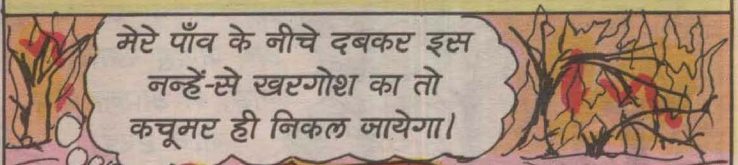 मेरे पाँव के नीचे दबकर इस
नन्हें-से खरगोश का तो
कचूमर ही निकल जायेगा।